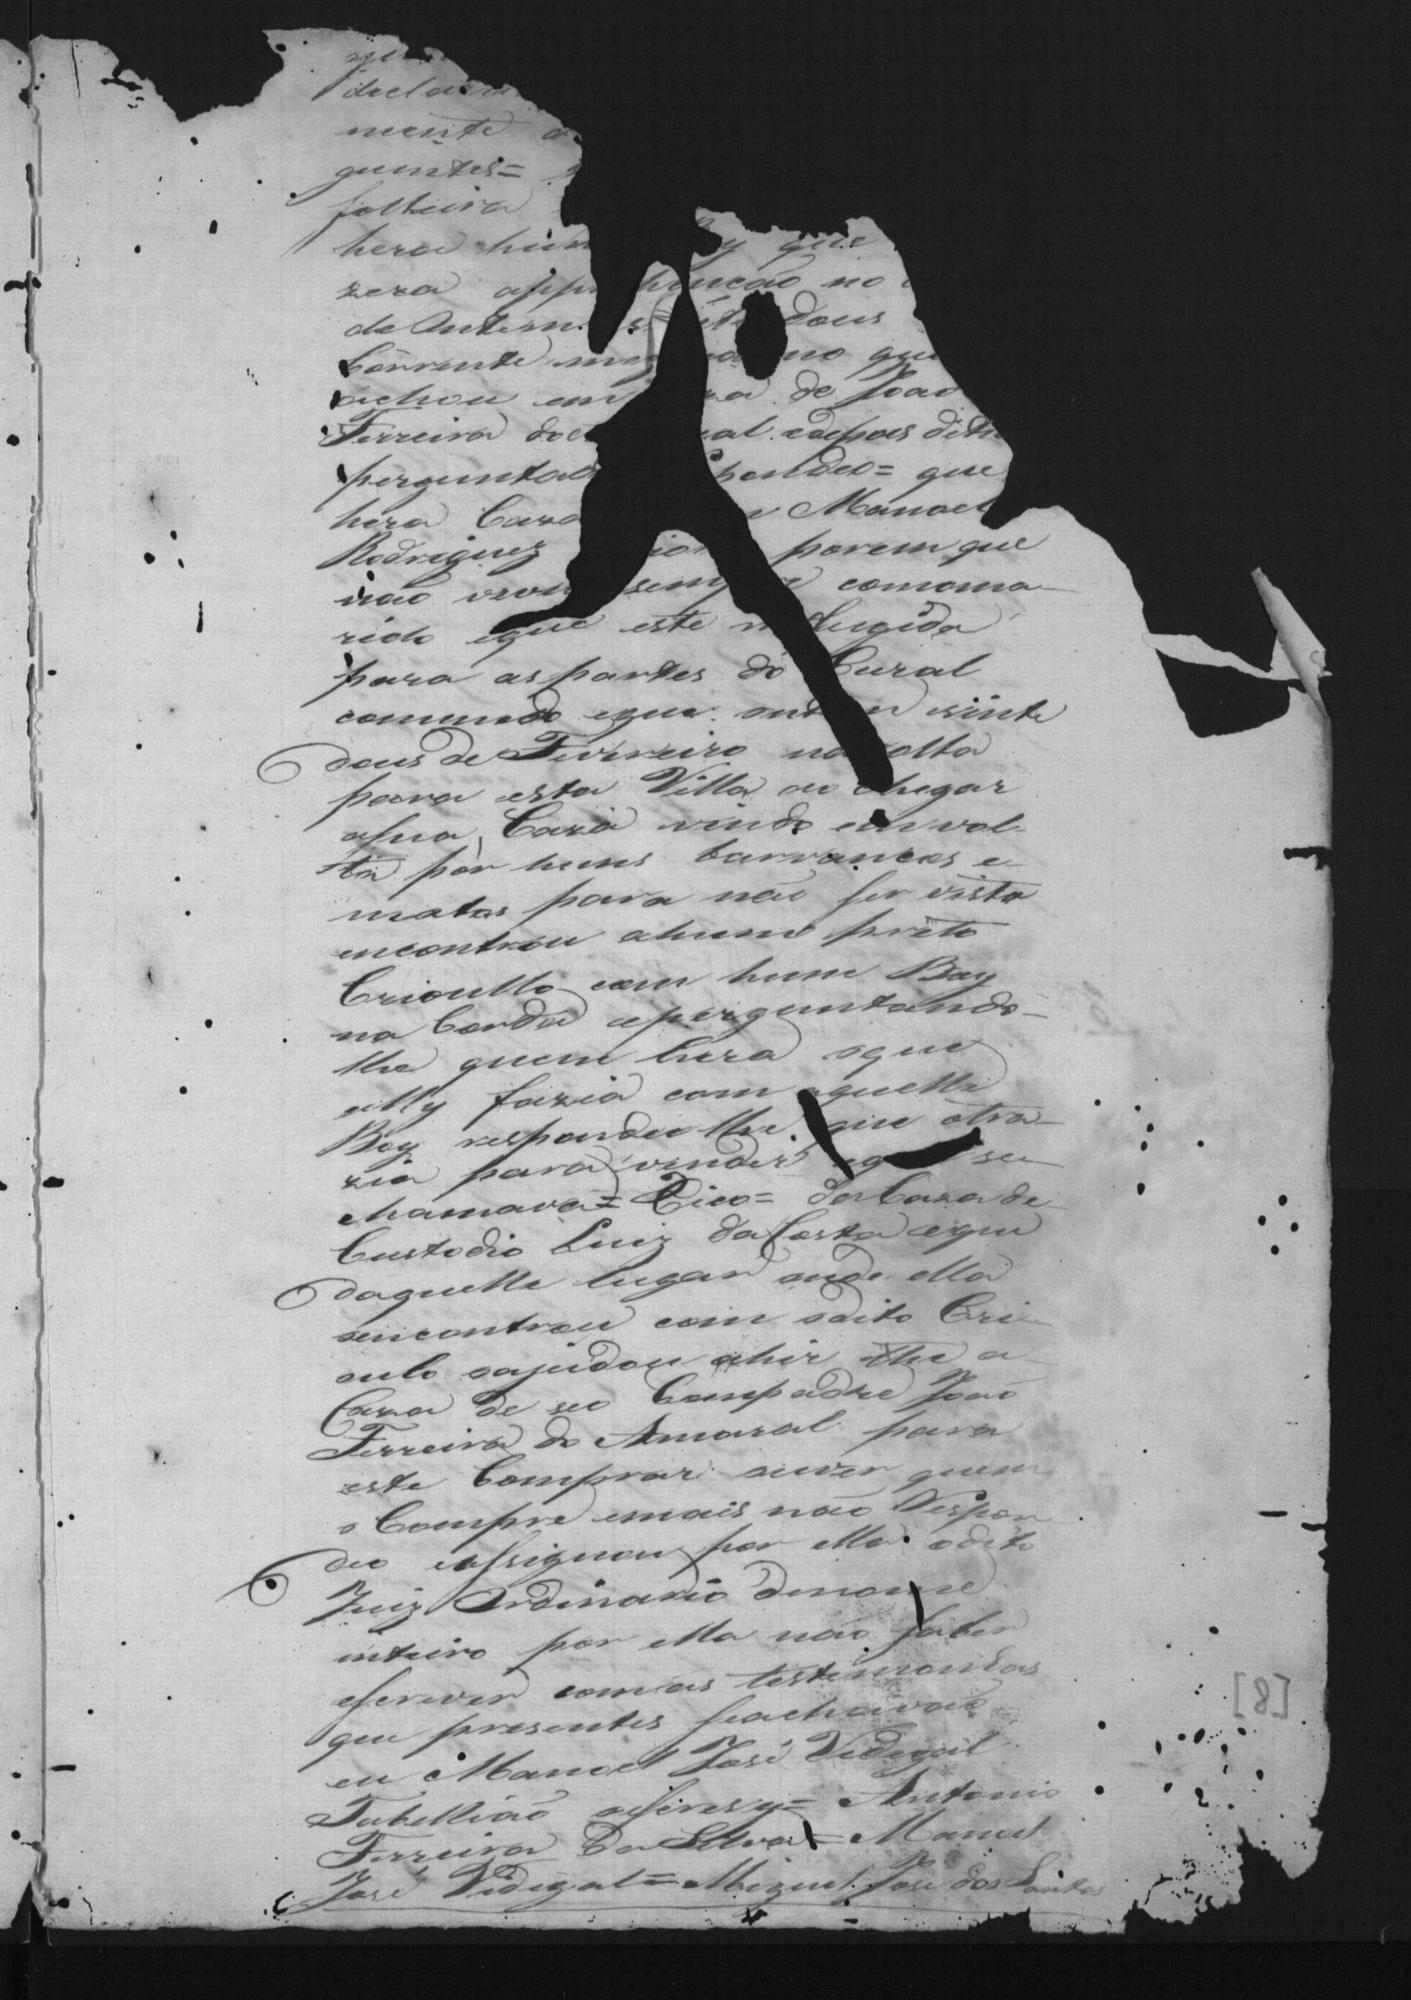 que
declara
mente a
guintes=
solteira
hera hum Boy que
zera appr henção no
de Ontem vinte dous
Corrente mez no que
achou em Caza de Joao
Ferreira do Amaral edepois disto
perguntad Respondeo= que
hera Caza Manoel
Rodriguez porem que
não vevia sempre comoma
rido eque este m fugida
para as partes do Cural
comundo eque ontem vinte
dous de Fevereiro na volta
para esta Villa ao chegar
asua Caza vindo em vol
ta por huns barrancos e
matos para não ser vista
encontrou ahum preto
Crioullo com hum Boy
na Corda eperguntando-
lhe quem hera oque
ally fazia com aquelle
Boy respondeo lhe que otra
zia para vender eque se
chamava= Tico= da Caza de
Custodio Luiz da Costa eque
daquelle lugar onde ella
sencontrou com odito Cri
oulo oajudou ahir the a
Caza de seo Compadre João
Ferreira do Amaral para
este Comprar ouver quem
o Compre emais não Respon
deo eassignou por ella odito
Juiz Ordinario denome
inteiro por ella não saber
escrever com as testemonhas
que presentes seachavão
eu Manoel José Vidigal
Tabellião oescrevy= Antonio
Ferreira da Silva= Manoel
José Vidigal= Miguel José dos Santos
[8]